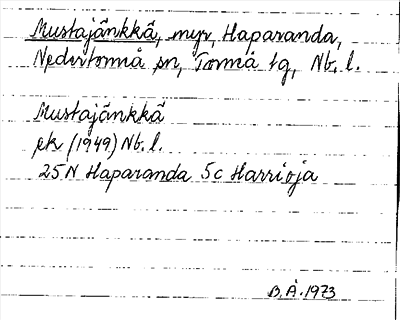 Mustajänkkä, myr, Haparanda,
Nedertorneå sn, Torneå tg, Nb. l.
Mustajänkkä
ek (1949) Nb. l.
25N Haparanda 5c Harrioja
B.Å. 1973